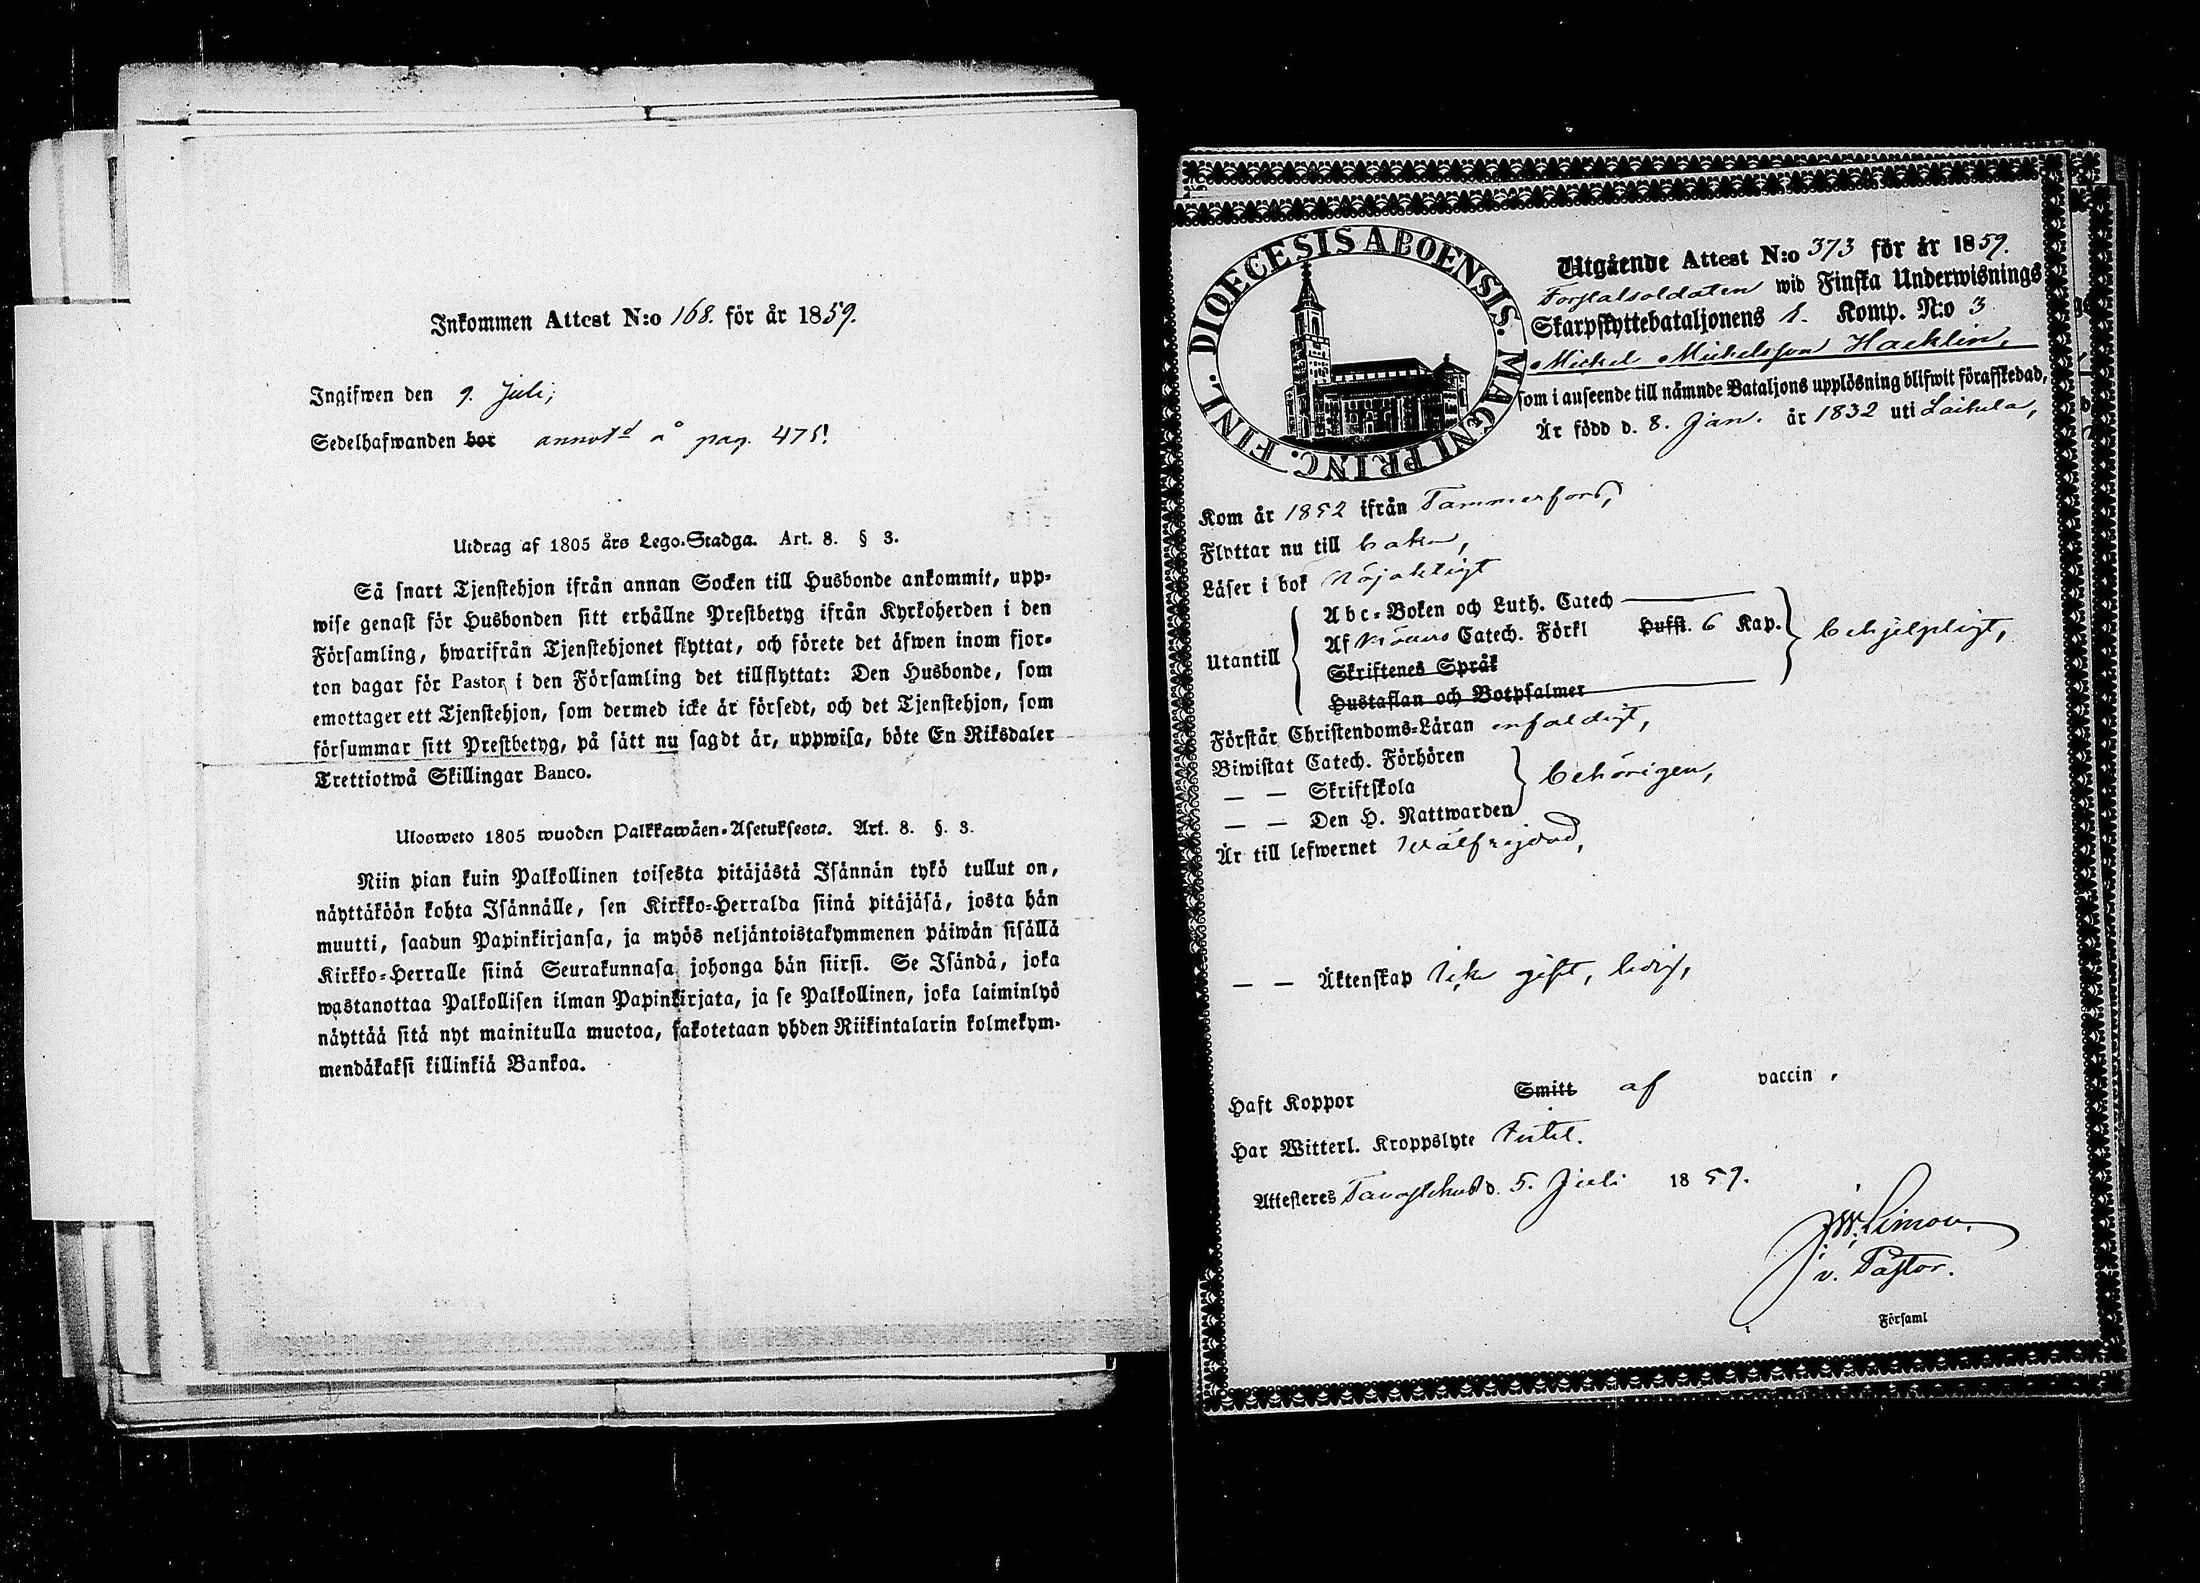 Inkommen Attest N:o 168. för år 1859.
Ingifwen den 9. Juli;
Sedelhafwanden bor annotd å pag. 475!
Utdrag af 1805 års Lego-Stadga. Art. 8. § 3.
Så snart Tjenstehjon ifrån annan Socken till Husbonde ankommit, upp-
wise genast för Husbonden sitt erhållne Prestbetyg ifrån Kyrkoherden i den
Församling, hwarifrån Tjenstehjonet flyttat, och förete det äfwen inom fjor-
ton dagar för Pastor, i den Församling det tillflyttat: Den Husbonde, som
emottager ett Tjenstehjon, som dermed icke är försedt, och det Tjenstehjon, som
försummar sitt Prestbetyg, på sätt nu sagdt är, uppwisa, böte En Riksdaler
Trettiotwå Skillingar Banco.
Ulosweto 1805 wuoden Palkkawäen-Asetuksesta. Art. 8. §. 3.
Niin pian kuin Palkollinen toisesta pitäjästä Isännän tykö tullut on,
näyttäköön kohta Isännälle, sen Kirkko-Herralda siinä pitäjäsä, josta hän
muutti, saadun Papinkirjansa, ja myös neljäntoistakymmenen päiwän sisällä
Kirkko-Herralle siinä Seurakunnasa johonga hän siirsi. Se Isändä, joka
wastanottaa Palkollisen ilman Papinkirjata, ja se Palkollinen, joka laiminlyö
näyttää sitä nyt mainitulla muotoa, sakotetaan yhden Riikintalarin kolmekym-
mendäkaksi killinkiä Bankoa.
DIOECESIS ABOENSIS. MAGNI PRINC. FINL.
Utgående Attest N:o 373 för år 1859.
Forstalsoldaten wid Finska Underwisnings
Skarpskyttebataljonens 1. Komp. N:o 3
Mickel Mickelsson Hacklin,
som i anseende till nämnde Bataljons upplösning blifwit förafskedad,
Är född d. 8. Jan. år 1832 uti Laihela,
Kom år 1852 ifrån Tammerfors,
Flyttar nu till
Läser i bok Nöjaktigt
Utantill
Abc-Boken och Luth. Catech
Af Catech. Förkl Hufst. 6 Kap.
behjelpligt,
Skriftenes Språk
Hustaflan och Botpsalmer
Förstår Christendoms-Läran enfaldigt,
Biwistat Catech. Förhören
— — Skriftskola
behörigen,
— — Den H. Nattwarden
Är till lefwernet wälfrejdad,
— — Äktenskap Icke gift, ledig,
Haft Koppor Smitt af vaccin,
Har Witterl. Kroppslyte Intet.
Attesteres Tavastehus d. 5. Juli 1859.
J. W. Limon.
v. Pastor.
Församl